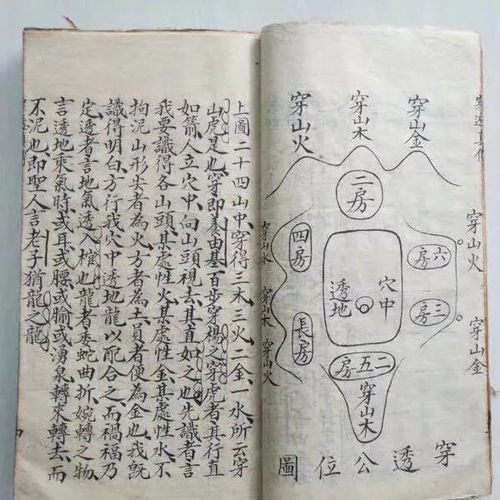 上圖二十四山中穿得三木三火二金一水所云穿
山虎是也穿即養由基百步穿楊之穿虎者其行直
如箭人立穴中向山頭視去其直如之也先識者言
我要識得各山頭其處性火其處性金其處性水不
拘泥山形尖者為火方者為土員者便為金也我既
識得明白方行我穴中透地龍以配合之而禍福乃
定透者言地氣透入棺也龍者委蛇曲折婉轉之物
言透地乘氣時或耳或腰或腧或湧泉轉來轉去而
不泥也即聖人言老子猶龍之龍
穿山金
穿山木
穿山火
二房
穿山火
六房
三房
穿山金
穴中
透地
四房
長房
穿山水
穿山木
穿山火
二五房
穿山木
穿透公位圖